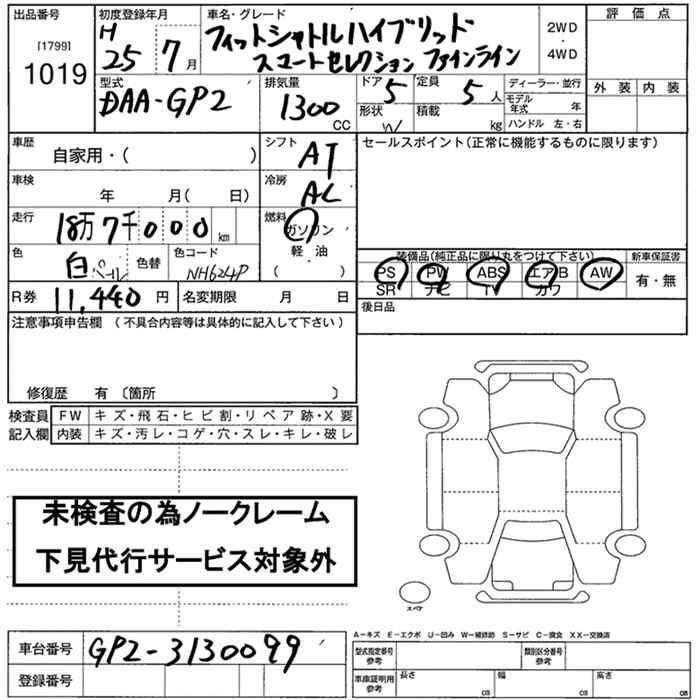 出品番号
[1799]
1019
初度登録年月
H
25 7月
車名・グレード
フィットシャトルハイブリッド
スマートセレクション ファインライン
2WD
・
4WD
評価点
外装 内装
型式
DAA-GP2
排気量
1300
CC
ドア
5
形状
W
定員
5人
積載
kg
ディーラー・並行
モデル年式 年
ハンドル 左・右
車歴
自家用・( )
シフト
AT
セールスポイント(正常に機能するものに限ります)
車検
年 月( 日)
冷房
AC
走行
18万7千000 km
燃料
ガソリン
軽油
( )
色
白パール
色替
色コード
NH624P
R券 11,440円
名変期限 月 日
装備品(純正品に限り丸をつけて下さい)
PS PW ABS エアB AW
SR ナビ TV カワ
新車保証書
有・無
後日品
注意事項申告欄 (不具合内容等は具体的に記入して下さい)
修復歴 有 〔箇所 〕
検査員記入欄
FW キズ・飛石・ヒビ割・リペア跡・X要
内装 キズ・汚レ・コゲ・穴・スレ・キレ・破レ
未検査の為ノークレーム
下見代行サービス対象外
スペア
A-キズ E-エクボ U-凹み W-補修跡 S-サビ C-腐食 XX-交換済
車台番号 GP2-3130099
登録番号
型式指定番号
参考
類別区分番号
参考
車庫証明用
参考
長さ cm
幅 cm
高さ cm